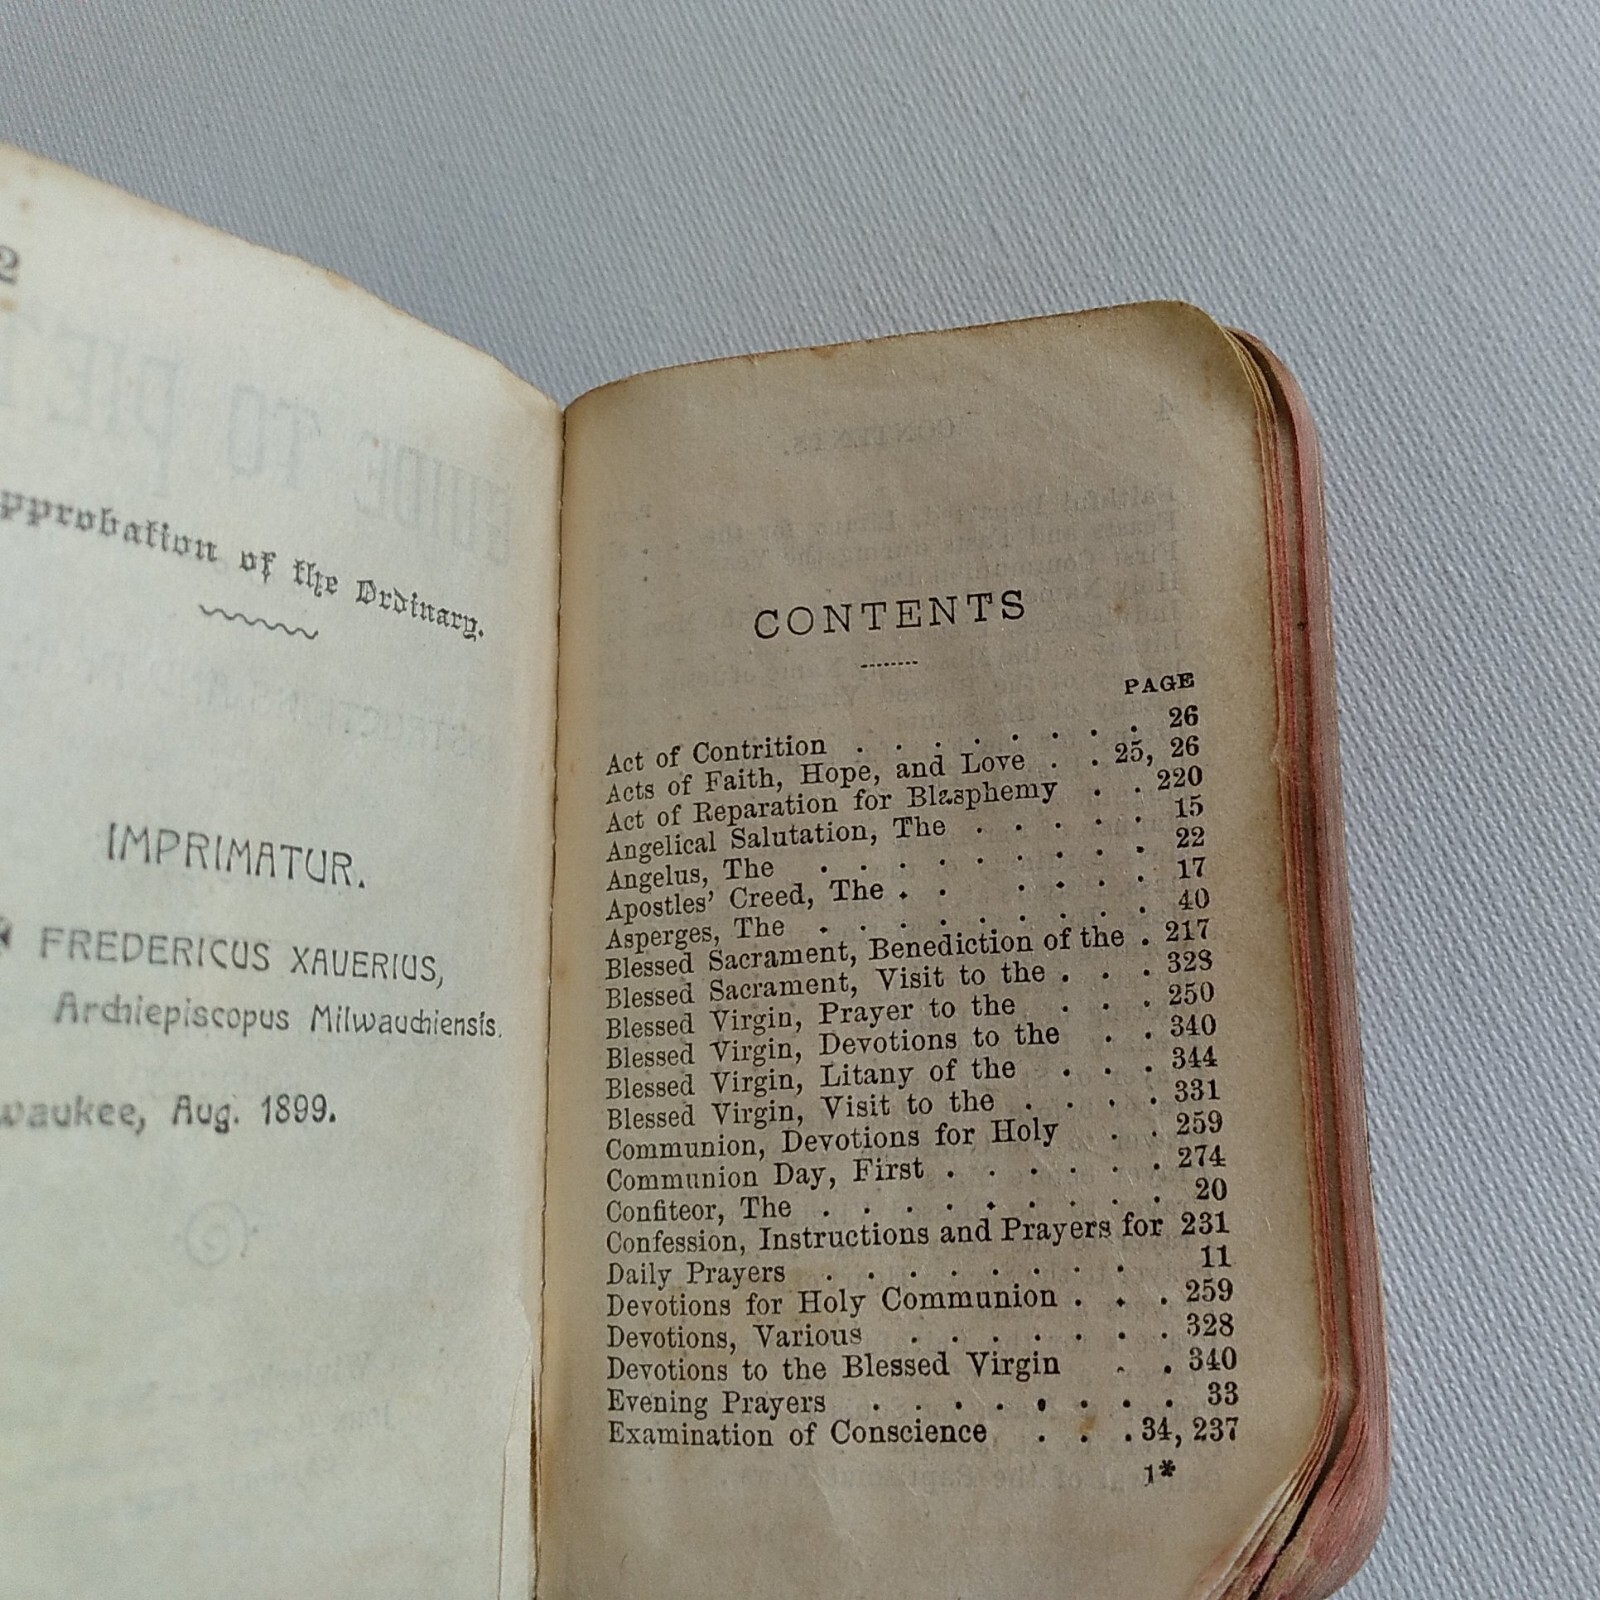 2
pprobation of the Ordinary.
IMPRIMATUR.
✠ FREDERICUS XAVERIUS,
Archiepiscopus Milwauchiensis.
waukee, Aug. 1899.
CONTENTS
PAGE
Act of Contrition . . . . . . . . 26
Acts of Faith, Hope, and Love . . 25, 26
Act of Reparation for Blasphemy . . 220
Angelical Salutation, The . . . . . 15
Angelus, The . . . . . . . . . 22
Apostles' Creed, The . . . . . . 17
Asperges, The . . . . . . . . . 40
Blessed Sacrament, Benediction of the . 217
Blessed Sacrament, Visit to the . . . 328
Blessed Virgin, Prayer to the . . . 250
Blessed Virgin, Devotions to the . . 340
Blessed Virgin, Litany of the . . . 344
Blessed Virgin, Visit to the . . . . 331
Communion, Devotions for Holy . . 259
Communion Day, First . . . . . . 274
Confiteor, The . . . . . . . . . 20
Confession, Instructions and Prayers for 231
Daily Prayers . . . . . . . . 11
Devotions for Holy Communion . . . 259
Devotions, Various . . . . . . . 328
Devotions to the Blessed Virgin . . 340
Evening Prayers . . . . . . . . 33
Examination of Conscience . . . 34, 237
1*